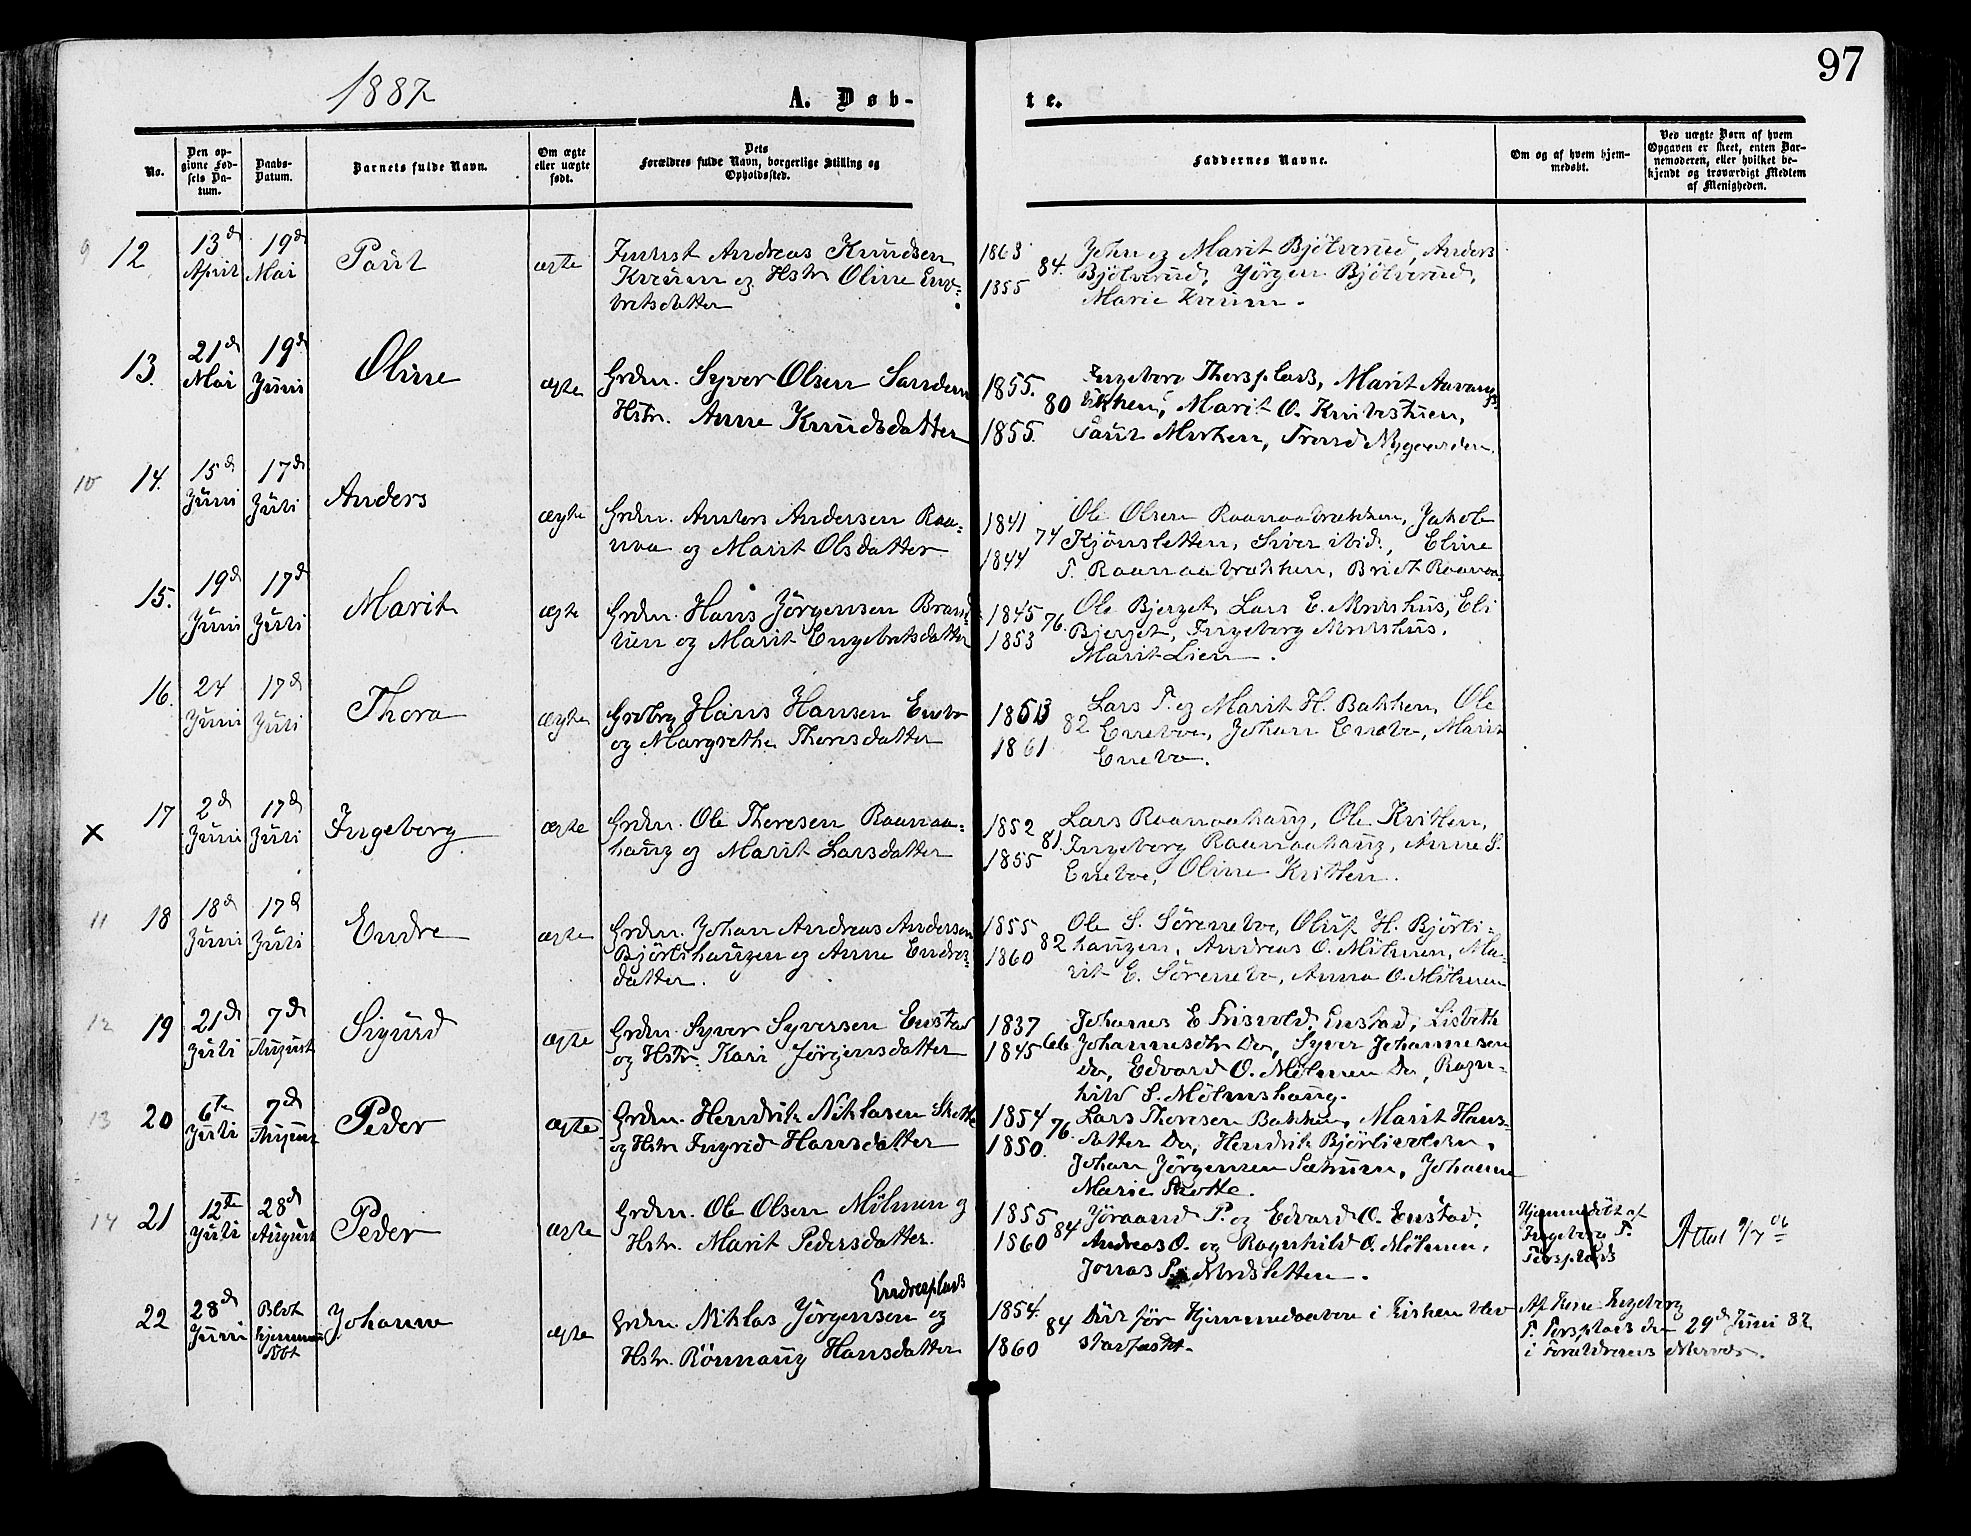 97
1887
A. Døb-
te.
No.
Den op-
givne Fød-
sels Da-
tum.
Daabs-
Datum.
Barnets fulde Navn.
Om ægte
eller uægte
født.
Dets
Forældres fulde Navn, borgerlige Stilling og
Opholdssted.
Faddernes Navne.
Om og af hvem hjem-
medøbt.
Ved uægte Børn af hvem
Opgaven er skeet, enten Bar-
nemoderen, eller hvilket be-
kjendt og troværdigt Medlem
af Menigheden.
9 12 13d April 19d Mai Paul ægte
Andreas Knudsen
Kveum og Hstr Oline Enge-
bretsdatter
1863 1855 84.
John og Marit Bjölverud, Anders
Bjölverud, Jörgen Bjölverud,
Marie Kveum.
13. 21d Mai 19d Juni Oline ægte
Grdm. Syver Olsen Sandem
Hstr. Anne Knudsdatter
1855. 1855. 80
Ingeborg Thorsplads, Marit Aavangs-
bakken, Marit O. Knivestuen,
Paul Moken, Trond Nygaarden.
10 14. 15d Juni 17d Juli Anders ægte
Grdm. Anders Andersen Raa-
naa og Marit Olsdatter
1841 1844 74
Ole Olsen Raanaabrækken, Jakob
Kjönsletten, Siver ibid., Eline
P. Raanaabrækken, Brit Raanaa
15. 19d Juni 17d Juli Marit ægte
Grdm. Hans Jörgensen Brand-
lien og Marit Engebretsdatter
1845 1853 76.
Ole Bjerget, Lars E. Morshus, Eli
Bjerget, Ingeborg Morshus,
Marit Lien.
16. 24 Juni 17d Juli Thora ægte
Grdbrg Hans Hansen Enebo
og Margrethe Thoresdatter
1853 1861 82
Lars T. og Marit H. Bakken, Ole
Eneboe, Johan Enebo, Marit
Enebo.
x 17 2d Juni 17d Juli Ingeborg ægte
Grdm. Ole Thoresen Raanaa-
haug og Marit Larsdatter
1852 1855 81.
Lars Raanaahaug, Ole Kvitlen,
Ingeborg Raanaahaug, Anne S.
Eneboe, Oline Kvitlen.
11 18 18d Juni 17d Juli Endre ægte
Grdm. Johan Andreas Andersen
Bjorlihaugen og Anne Endres-
datter.
1855 1860 82
Ole S. Sörenebo, Oluf H. Bjorli-
haugen, Andreas O. Mölmen, Ma-
rit E. Sörenebo, Anna O. Mölmen
12 19 21d Juli 7d August Sigurd ægte
Grdm. Syver Syversen Enstad
og Hstr. Kari Jörgensdatter
1837 1845 66
Johanes E Frisvold, Enstad, Lisbeth
Johannesdtr Do, Syver Johannesen
do, Edvard O. Mölmen Do, Ragn-
hild S. Mölmshaug.
13 20 6te Juli 7d August Peder ægte
Grdm. Hendrik Niklasen Skotte
og Hstr Ingrid Hansdatter
1854 1850. 76.
Lars Thoresen Bakken, Marit Hans-
datter Do, Hendrik Bjorlivolden,
Johan Jörgensen Sætrum, Johanne
Marie Skotte.
14 21 12te Juli 28d August Peder ægte
Grdm. Ole Olsen Mölmen og
Hstr. Marit Pedersdatter.
1855 1860 84
Jöraand P. og Edvard O. Enstad,
Andreas O. og Ragnhild O. Mölmen,
Jonas P. Nordsletten.
Hjemmedöbt af
Ingeborg T.
Torsplads
Attest 9/7 06
22 28d Juni Blot hjemme döbt Johanne ægte
Endresplads
Grdm. Niklas Jörgensen og
Hstr. Rönnaug Hansdatter
1854. 1860 84
Död för Hjemmedaaben i Kirken blev
stadfæstet.
Af Ingeborg
T. Torsplads den 29d Juni 82
i Forældrenes Nærvær.